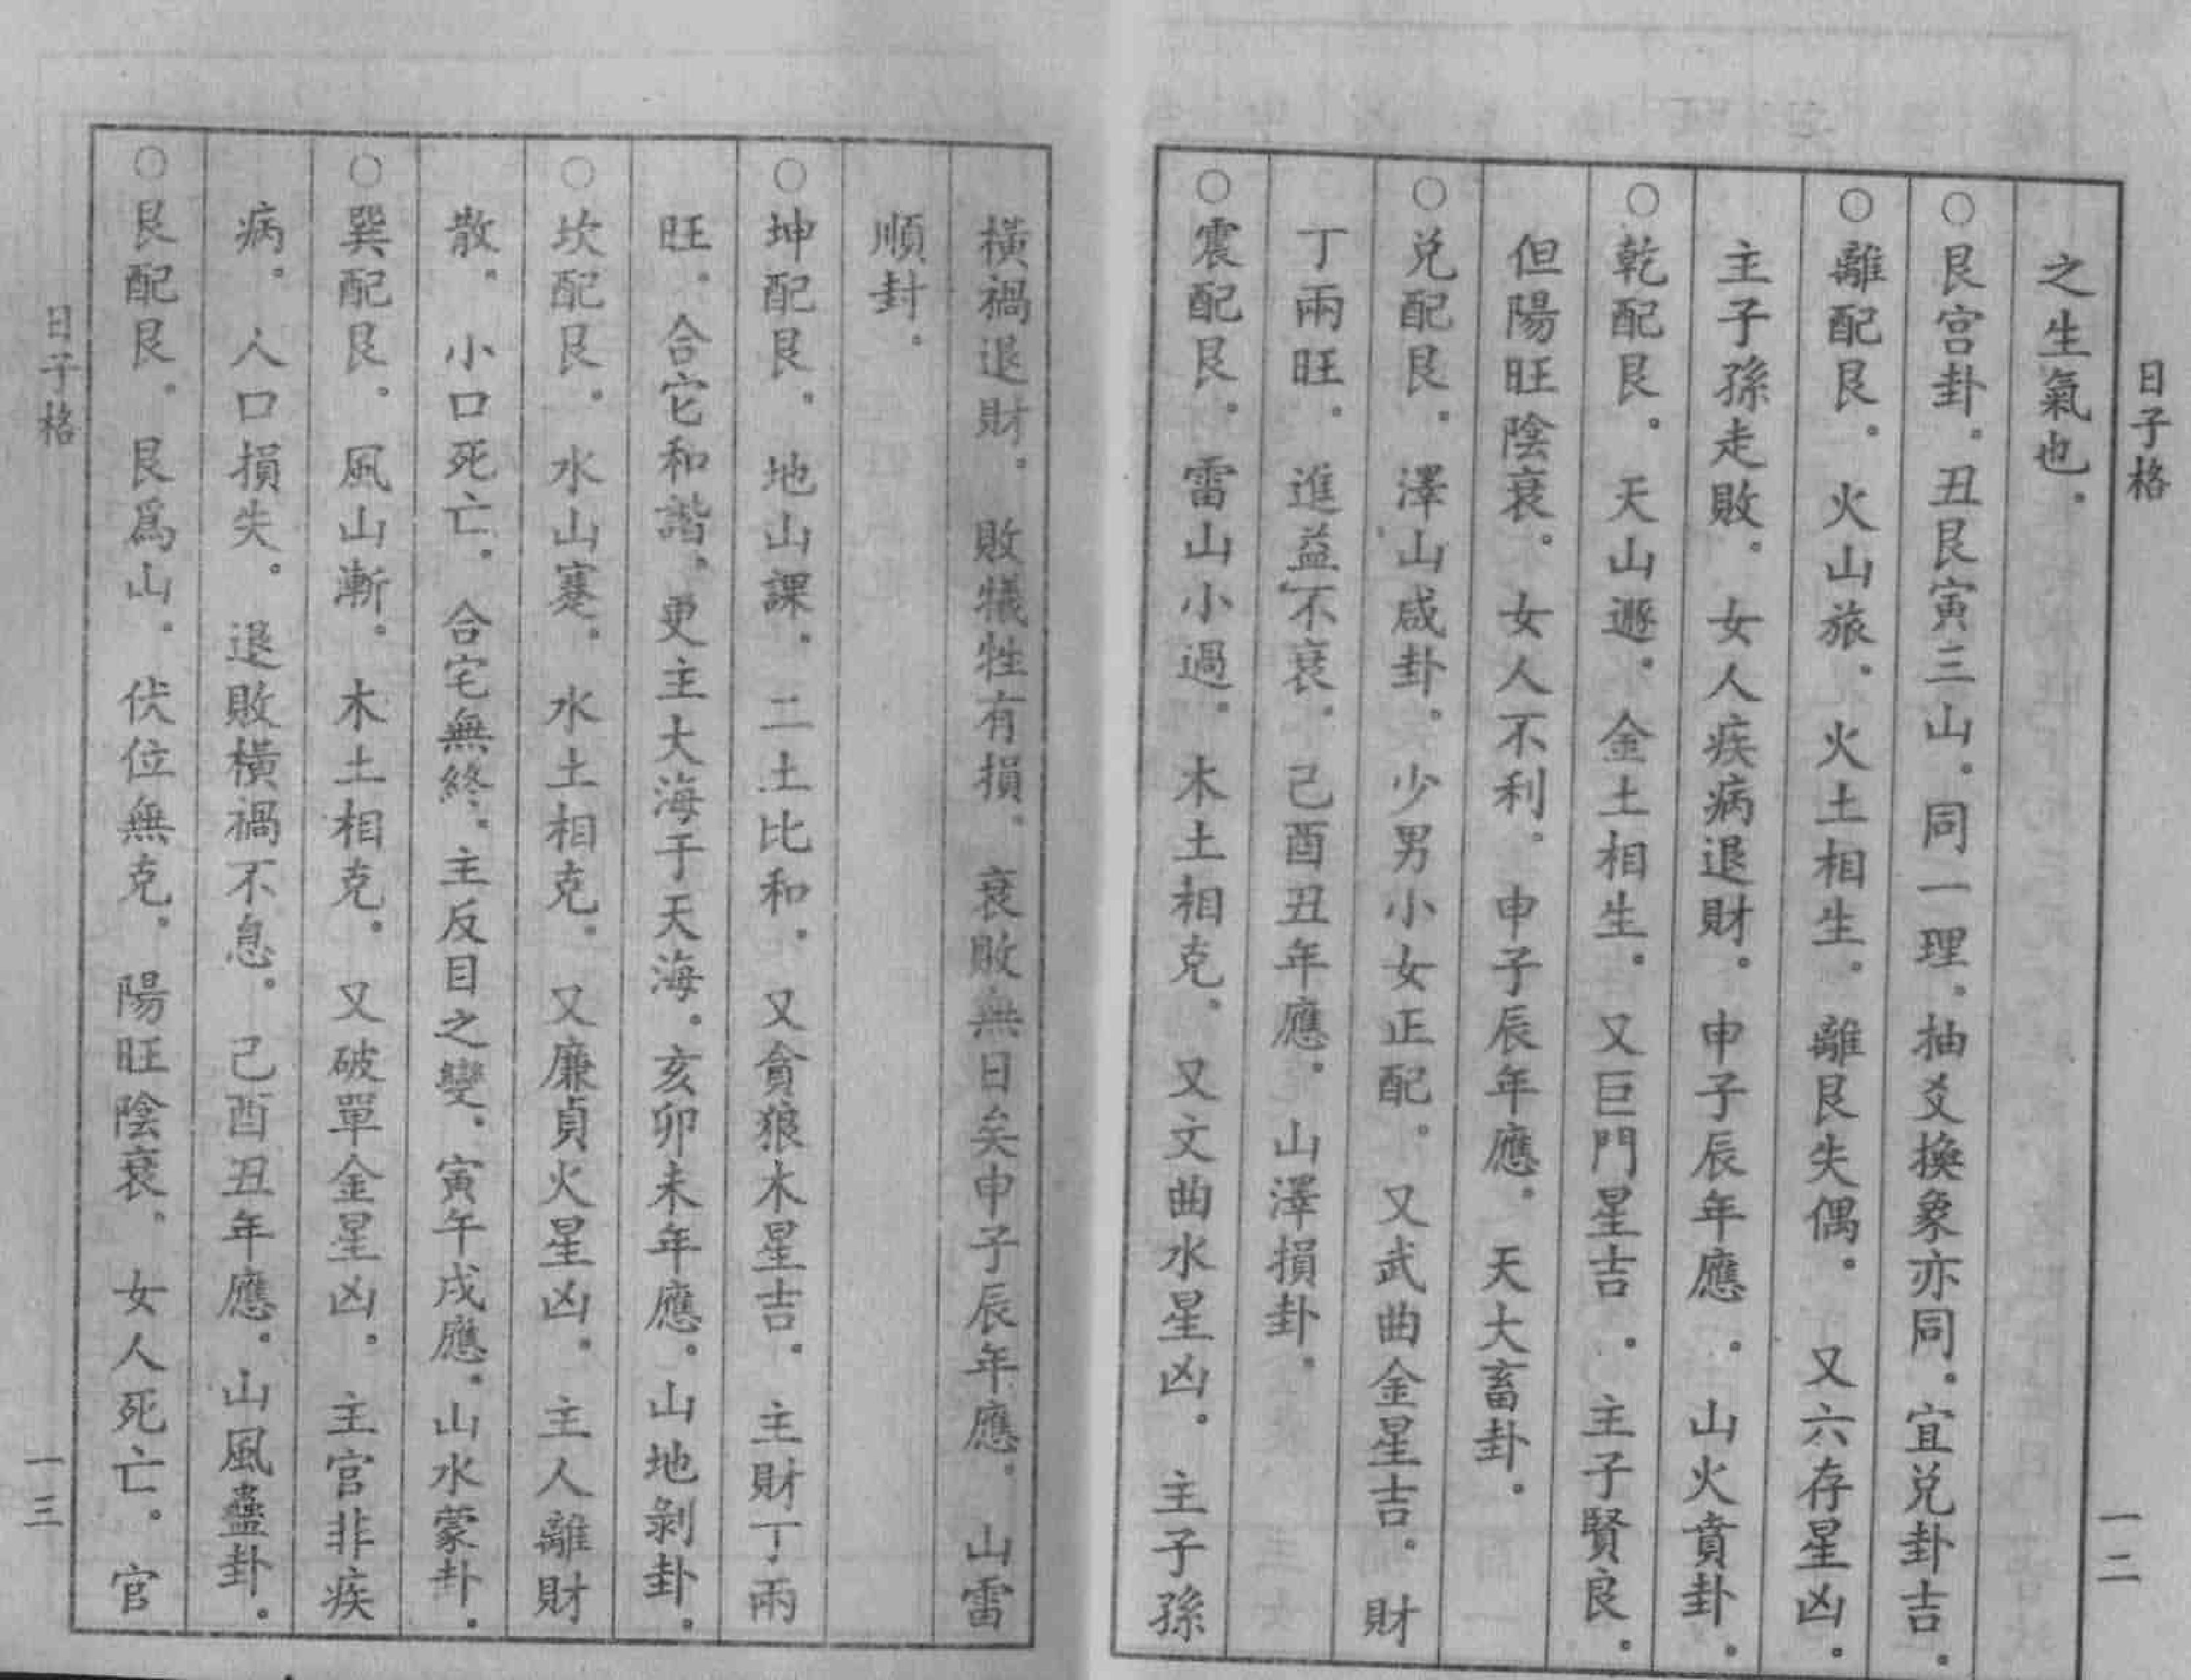 日子格
一二
之生氣也。
○艮宮卦。丑艮寅三山。同一理。抽爻換象亦同。宜兑卦吉。
○離配艮。火山旅。火土相生。離艮失偶。又六存星凶。
主子孫走敗。女人疾病退財。申子辰年應。山火賁卦。
○乾配艮。天山遯。金土相生。又巨門星吉。主子賢良。
但陽旺陰衰。女人不利。申子辰年應。天大畜卦。
○兑配艮。澤山咸卦。少男小女正配。又武曲金星吉。財
丁兩旺。進益不衰。己酉丑年應。山澤損卦。
○震配艮。雷山小過。木土相克。又文曲水星凶。主子孫
橫禍退財。敗犠牲有損。衰敗無日矣申子辰年應。山雷
順封。
○坤配艮。地山課。二土比和。又貪狼木星吉。主財丁兩
旺。合它和諧。更主大海于天海。亥卯未年應。山地剝卦。
○坎配艮。水山蹇。水土相克。又廉貞火星凶。主人離財
散。小口死亡。合宅無終。主反目之變。寅午戌應。山水蒙卦。
○巽配艮。風山漸。木土相克。又破單金星凶。主官非疾
病。人口損失。退敗橫禍不息。己酉丑年應。山風蠱卦。
○艮配艮。艮爲山。伏位無克。陽旺陰衰。女人死亡。官
日子格
一三